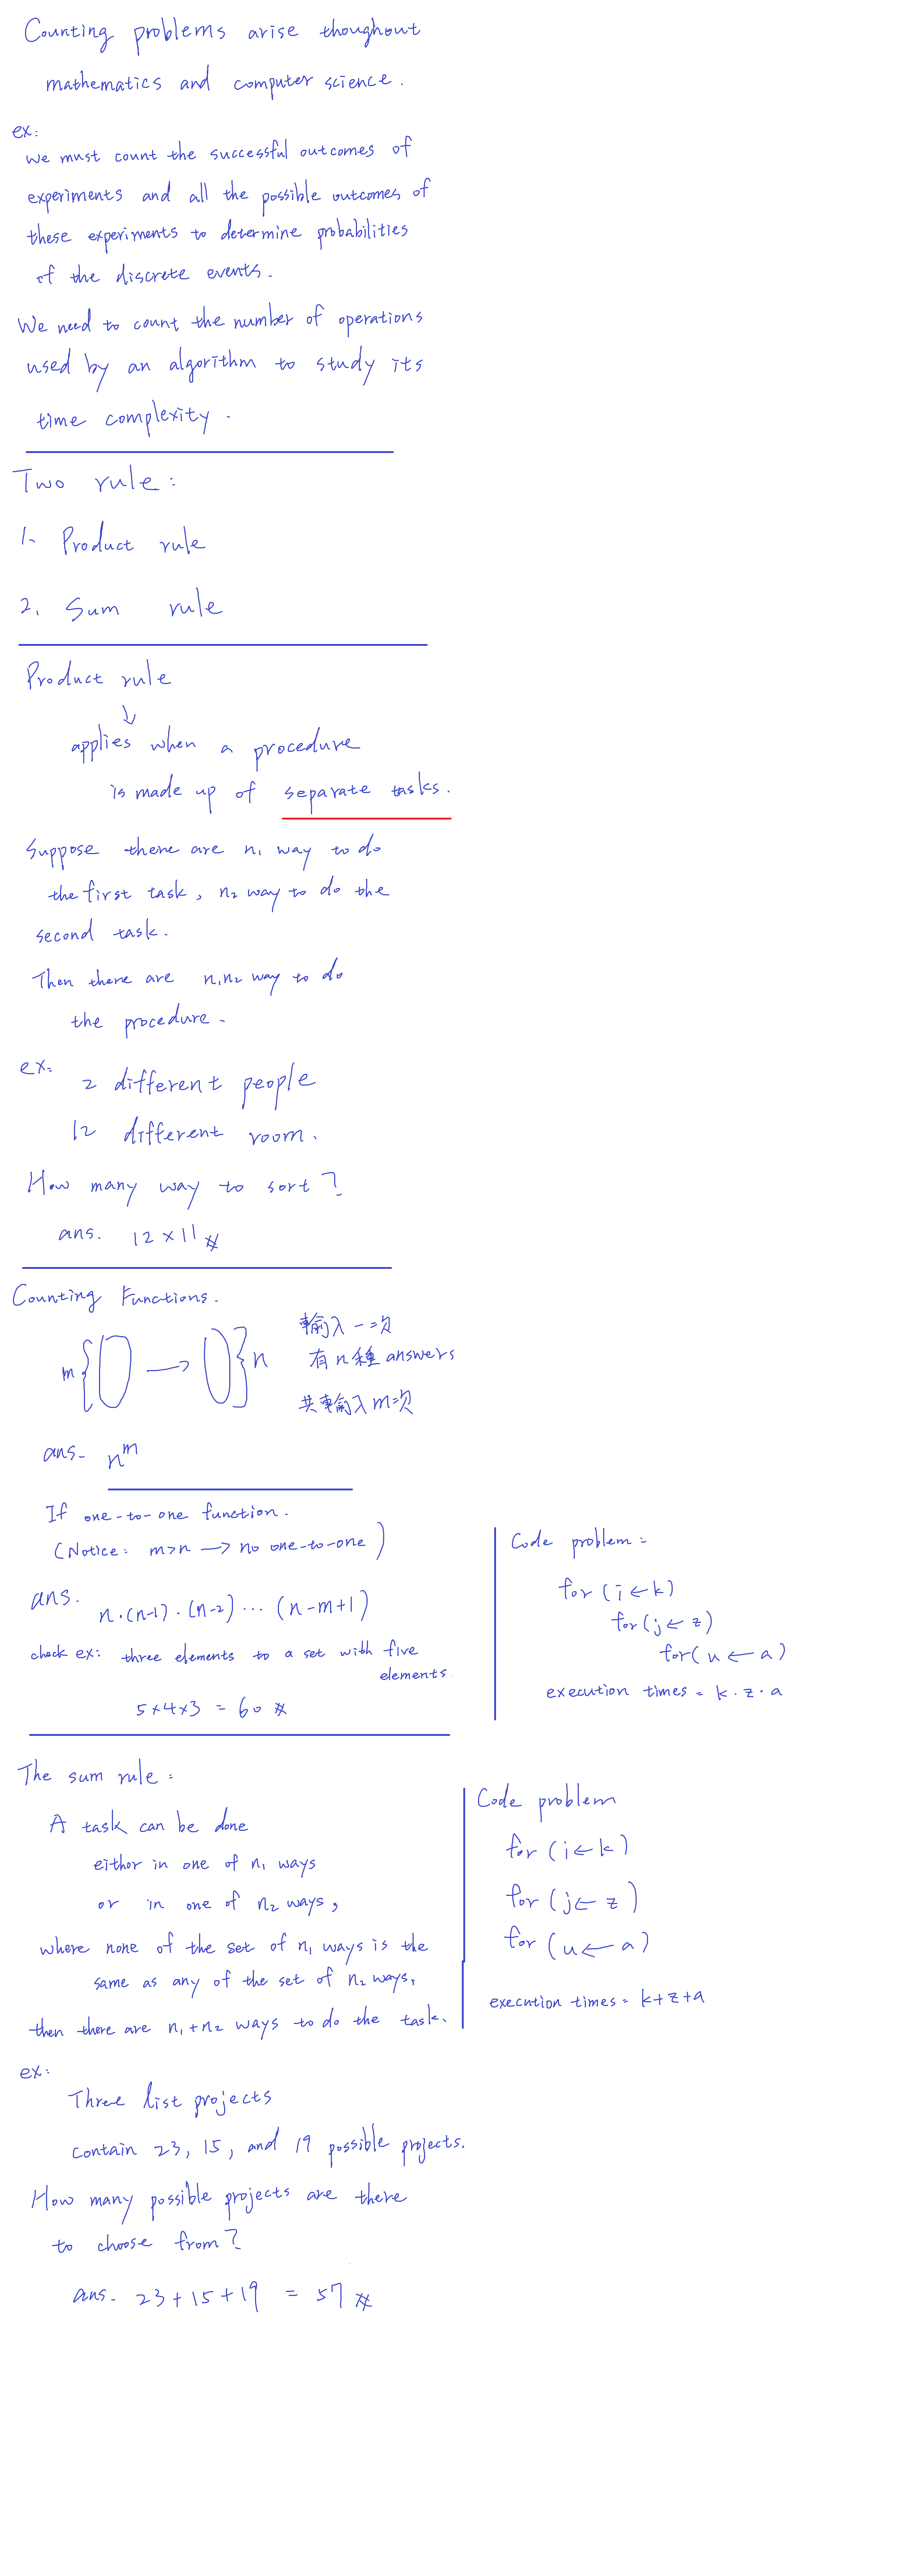 Counting problems arise thoughout
mathematics and computer science.
ex:
We must count the successful outcomes of
experiments and all the possible outcomes of
these experiments to determine probabilities
of the discrete events.
We need to count the number of operations
used by an algorithm to study its
time complexity.
Two rule:
1. Product rule
2. Sum rule
Product rule
↓
applies when a procedure
is made up of separate tasks.
Suppose there are n₁ way to do
the first task, n₂ way to do the
second task.
Then there are n₁n₂ way to do
the procedure.
ex:
2 different people
12 different room.
How many way to sort?
ans. 12 × 11 #
Counting Functions.
m{ → }n
輸入一次
有 n 種 answers
共輸入 m 次
ans. nᵐ
If one-to-one function.
(Notice: m>n → no one-to-one)
ans. n·(n-1)·(n-2)...(n-m+1)
check ex: three elements to a set with five
elements.
5×4×3 = 60 #
Code problem:
for (i ← k)
for (j ← z)
for (u ← a)
execution times = k·z·a
The sum rule:
A task can be done
either in one of n₁ ways
or in one of n₂ ways,
where none of the set of n₁ ways is the
same as any of the set of n₂ ways,
then there are n₁+n₂ ways to do the task.
Code problem
for (i ← k)
for (j ← z)
for (u ← a)
execution times = k+z+a
ex:
Three list projects
contain 23, 15, and 19 possible projects.
How many possible projects are there
to choose from?
ans. 23+15+19 = 57 #